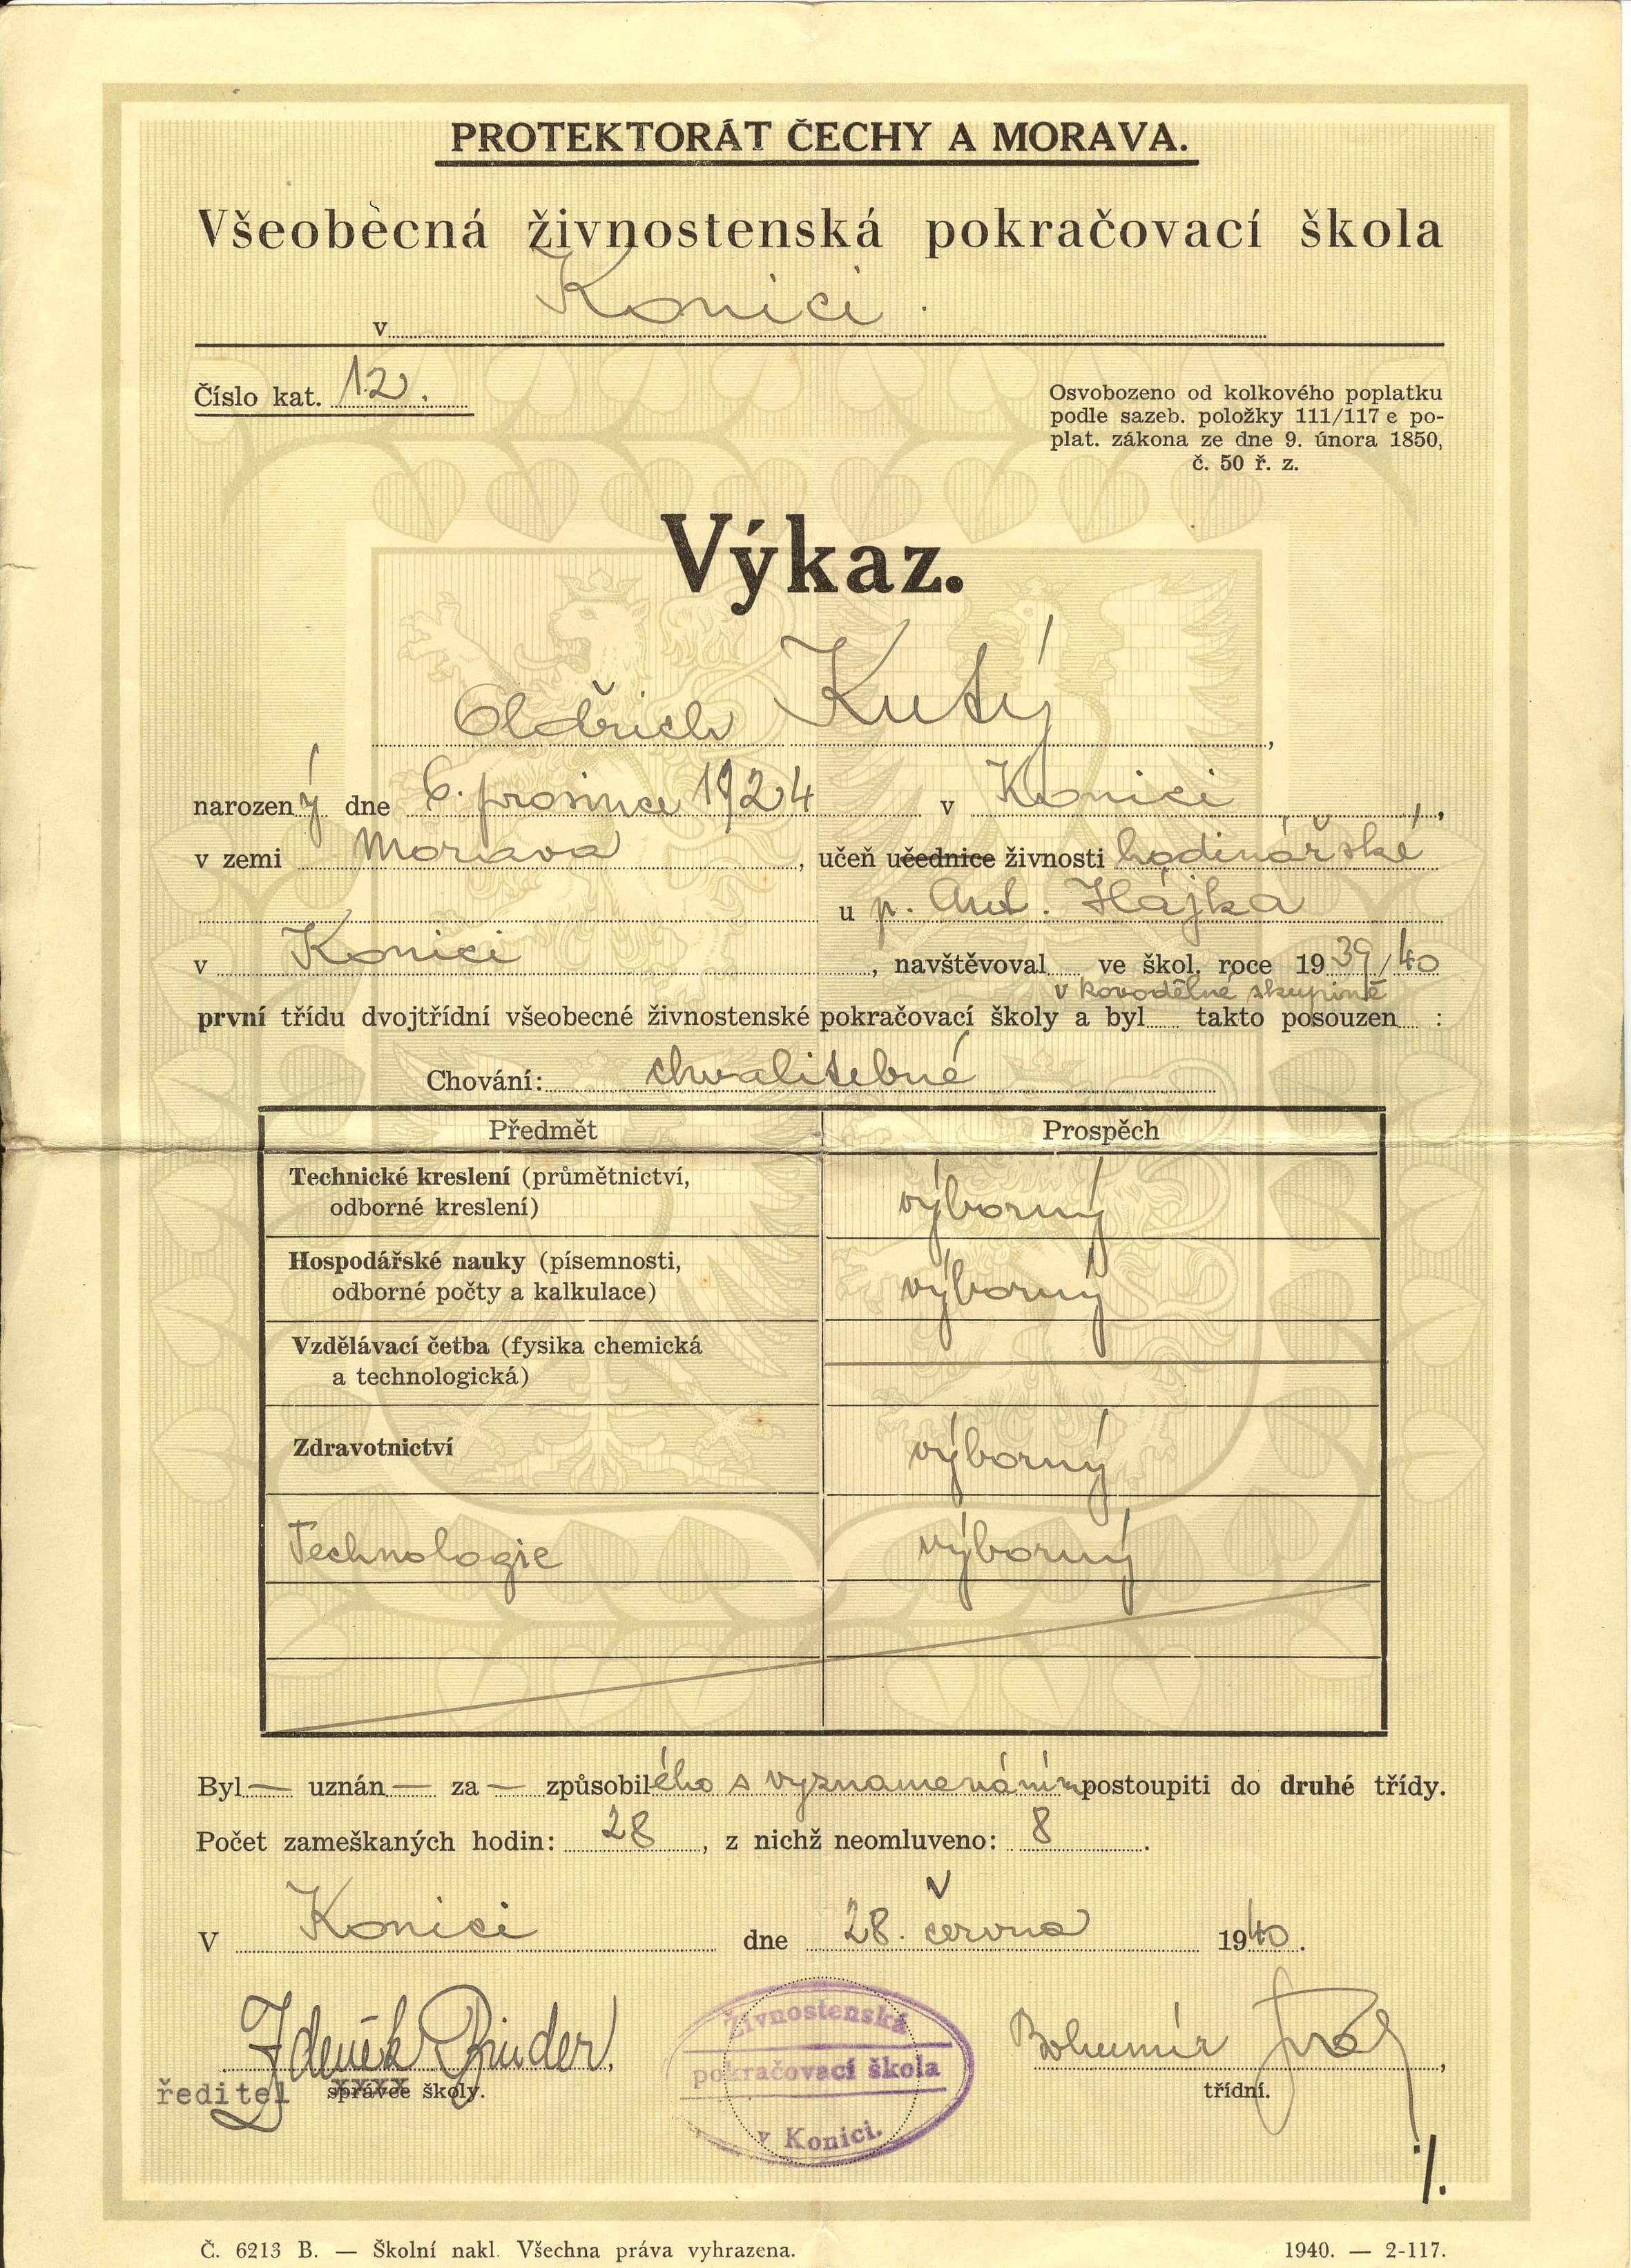 PROTEKTORÁT ČECHY A MORAVA.
Všeobecná živnostenská pokračovací škola
v Konici.
Číslo kat. 12.
Osvobozeno od kolkového poplatku
podle sazeb. položky 111/117 e po-
plat. zákona ze dne 9. února 1850,
č. 50 ř. z.
Výkaz.
Oldřich Kutý,
narozený dne 6. prosince 1924 v Konici,
v zemi Morava, učeň učednice živnosti hodinářské
u p. Ant. Hájka
v Konici, navštěvoval ve škol. roce 1939/40
v kovodělné skupině
první třídu dvojtřídní všeobecné živnostenské pokračovací školy a byl takto posouzen :
Chování: chvalitebné
Předmět Prospěch
Technické kreslení (průmětnictví,
odborné kreslení) výborný
Hospodářské nauky (písemnosti,
odborné počty a kalkulace) výborný
Vzdělávací četba (fysika chemická
a technologická)
Zdravotnictví výborný
Technologie výborný
Byl — uznán — za — způsobilého s vyznamenáním postoupiti do druhé třídy.
Počet zameškaných hodin: 28, z nichž neomluveno: 8.
V Konici dne 28. června 1940.
Zdeněk Binder,
ředitel správce školy.
Živnostenská
pokračovací škola
v Konici.
Bohumír
třídní.
·/.
Č. 6213 B. — Školní nakl. Všechna práva vyhrazena. 1940. — 2-117.